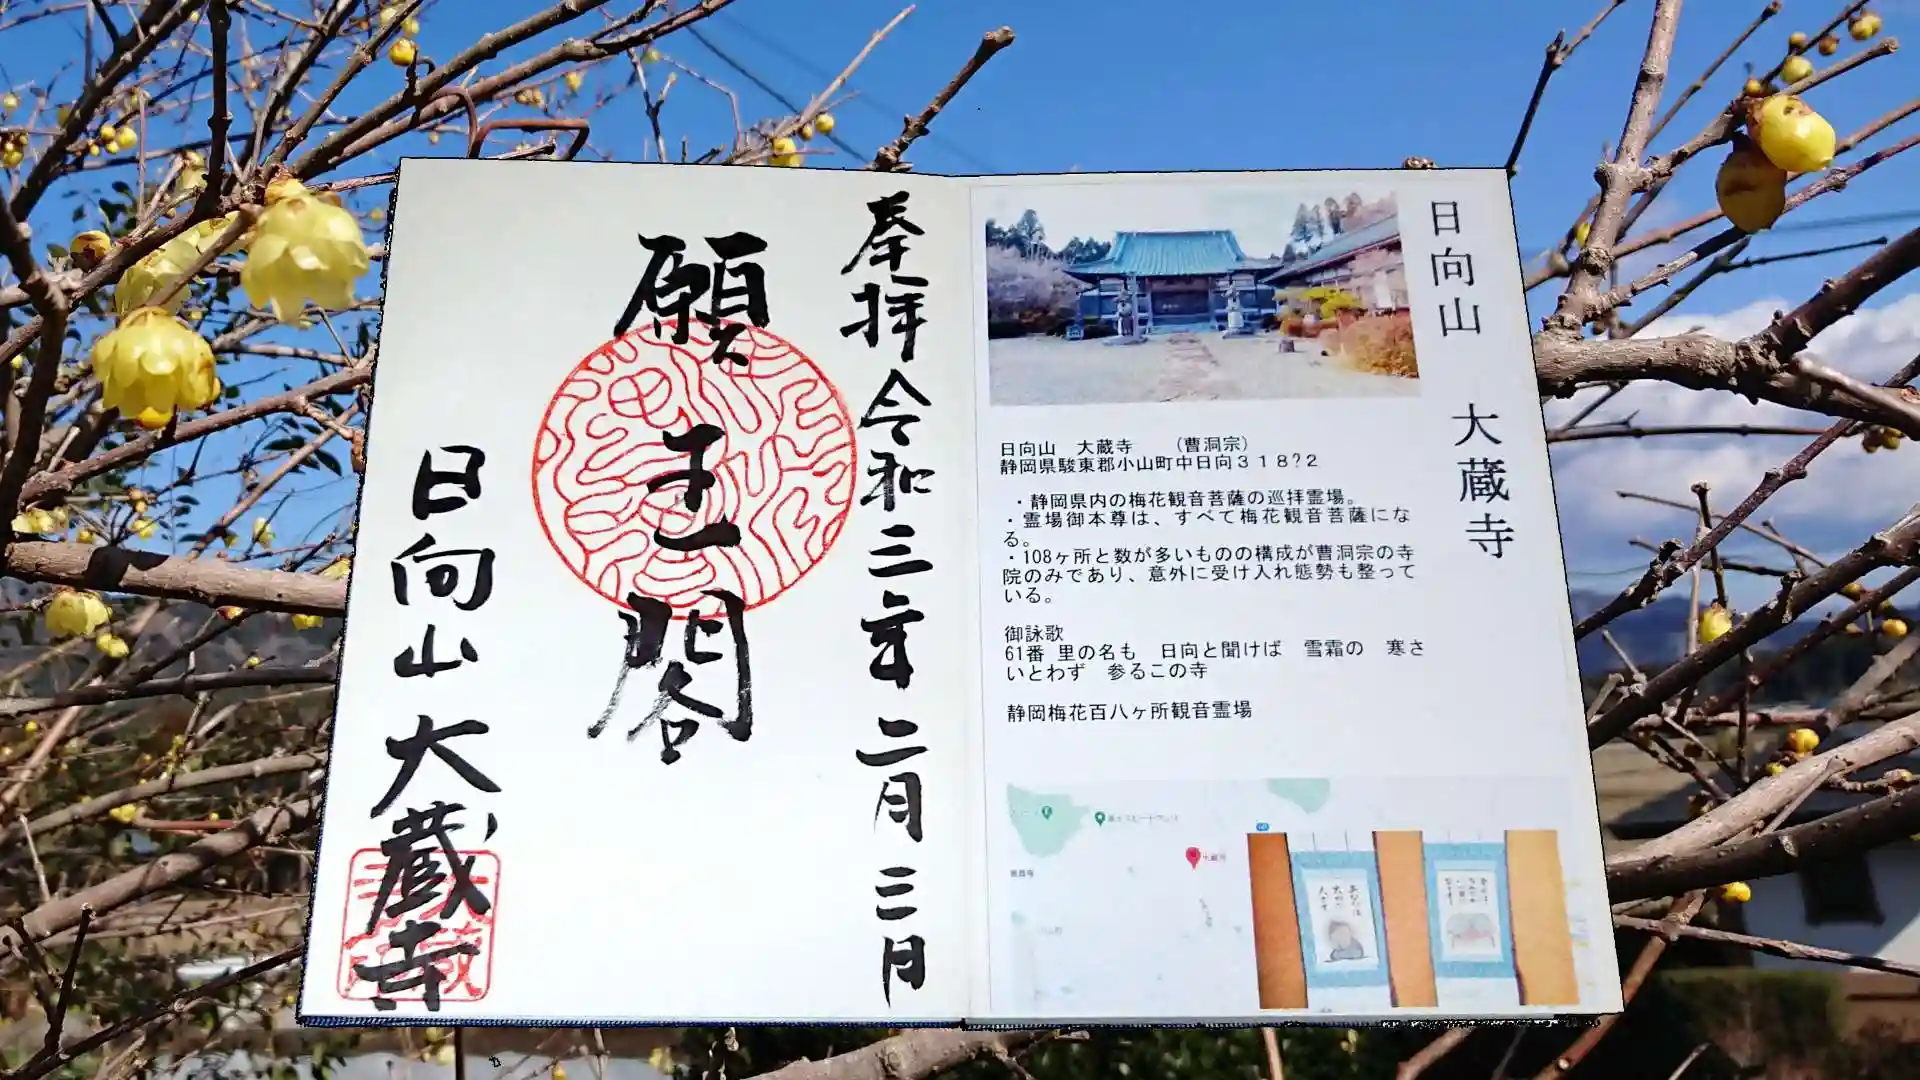 奉拝 令和三年 二月 三日
願王閣
日向山 大蔵寺
日向山 大蔵寺
日向山 大蔵寺 （曹洞宗）
静岡県駿東郡小山町中日向３１８?２
・静岡県内の梅花観音菩薩の巡拝霊場。
・霊場御本尊は、すべて梅花観音菩薩にな
る。
・108ヶ所と数が多いものの構成が曹洞宗の寺
院のみであり、意外に受け入れ態勢も整って
いる。
御詠歌
61番 里の名も 日向と聞けば 雪霜の 寒さ
いとわず 参るこの寺
静岡梅花百八ヶ所観音霊場
大蔵寺